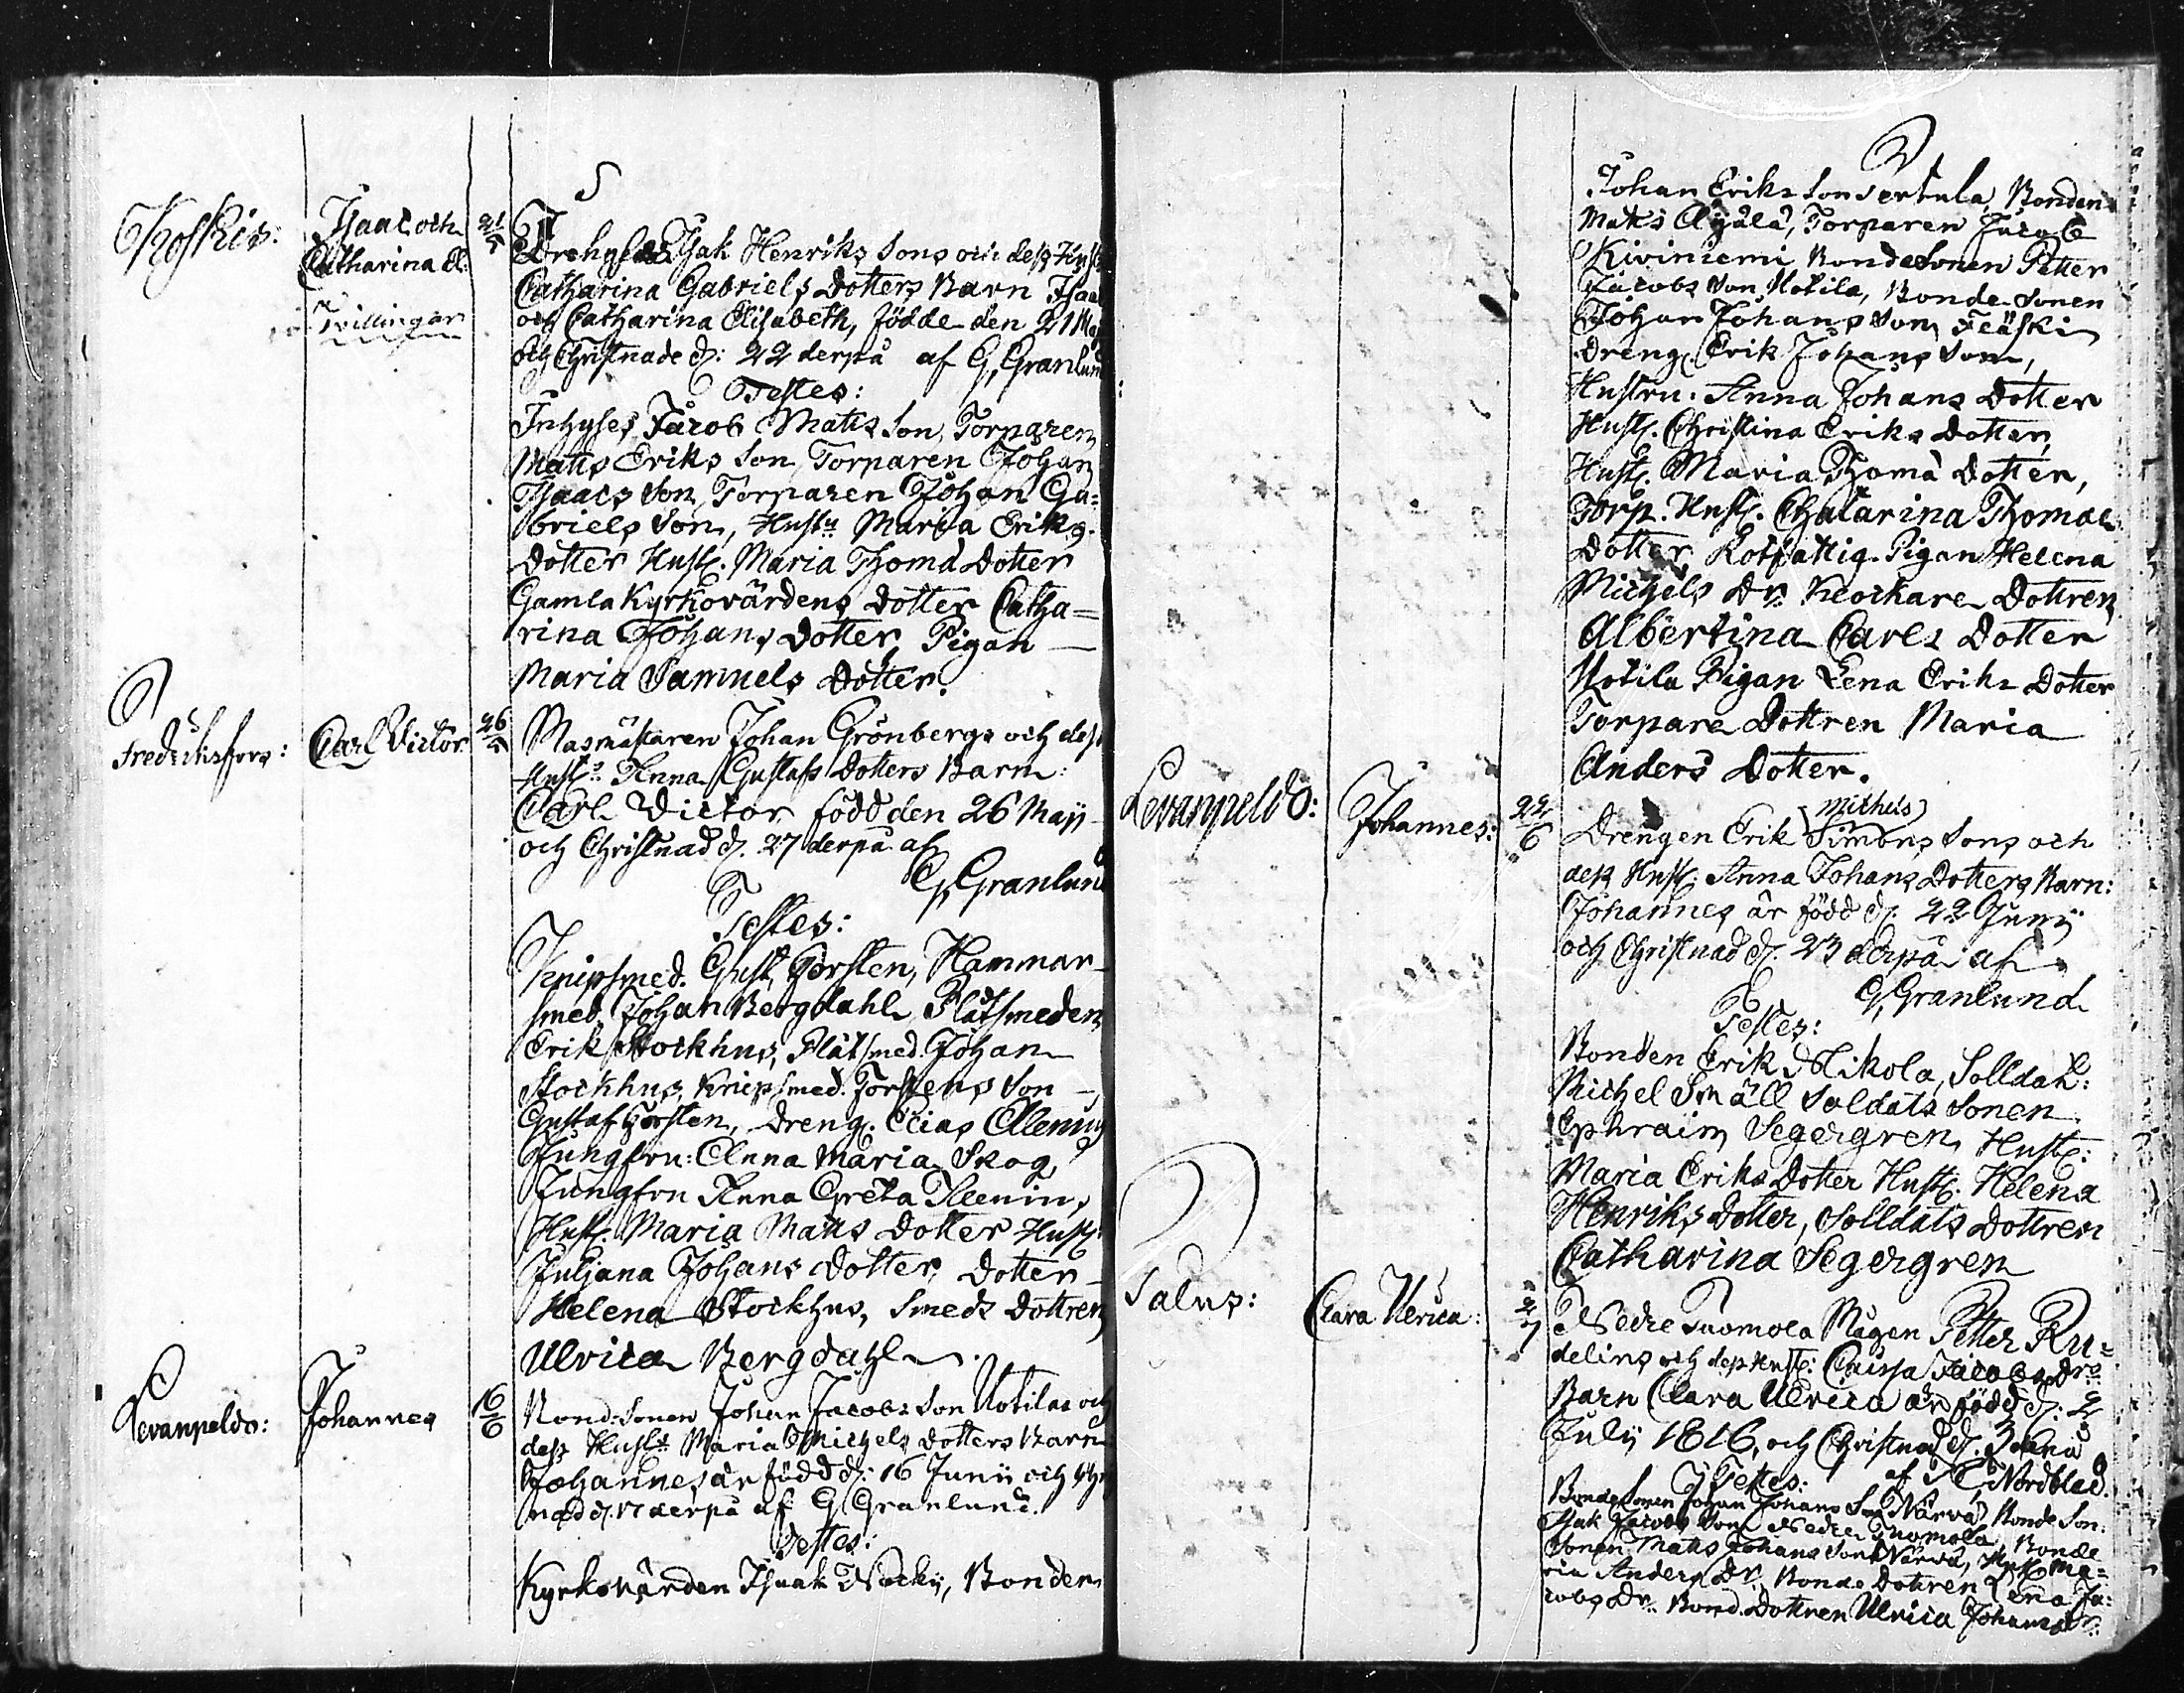 Koskis:
Isaac och
Catharina El:
Tvillingar
21/5
Isak Henriks Sons och dess Hust
Catharina Gabriels Dotters Barn Isaac
och Catharina Elisabeth, födde den 21 Maj
och Christnade d: 22 derpå af G, Granlund
Testes:
Inhyses, Jacob Matts Son, Torparen
Matts Eriks Son, Torparen Johan
Isaacs Son, Torparen Johan Ga=
briels Son, Hustu Maria Eriks
Dotter Hust. Maria Thoma Dotter
Gamla Kyrkovärdens Dotter Catha=
rina Johans Dotter, Pigan
Maria Samuels Dotter.
Fredriksfors:
Carl Victor
26/5
Masmästaren Johan Grönbergs och dess
Hust: Anna Gustafs Dotters Barn:
Carl Victor född den 26 Maji
och Christnad d. 27 derpå af
G, Granlund
Testes:
Knipsmed. Gust, Torsten, Hammar
smed, Johan Bergdahl, Plåtsmeden
Erik Stockhus, Plåtsmed. Johan
Stockhus, Knipsmed. Torstens Son
Gustaf Torsten, Dreng. Elias Alenius
Jungfru: Anna Maria Skog
Jungfru Anna Greta Alenin,
Hust. Maria Matts Dotter Hust:
Juljana Johans Dotter, Dotter
Helena Stockhus, Smeds Dottren
Ulrica Bergdahl.
Levanpeldo:
Johannes
16/6
Bond:Sonen Johan Jacobs Son Uotilas och
dess Hustr Maria Michels Dotters Barn
Johannes är född d: 16 Junii och Chr
nad d. 17 derpå af G Granlund.
Testes:
Kyrkovärden Isaak Nocky, Bonden
Johan Eriks Son Sertula, Bonden
Matts Äyälä, Torparen Jacob
Kiviniemi Bondesonen Petter
Jacobs Son Uotila, Bonde Sonen
Johan Johans Son Fläski
Dreng. Erik Johans Son,
Hustru. Anna Johans Dotter
Hust. Christina Eriks Dotter,
Hust. Maria Thoma Dotter,
Torp. Hust. Chatarina Thomae
Dotter Rotfattig. Pigan Helena
Michels Dr. Klockare Dottren
Albertina Carls Dotter
Uotila Pigan Lena Eriks Dotter
Torpare Dottren Maria
Anders Dotter.
Levanpeldo:
Johannes:
22/6
Michels
Drengen Erik Simons Sons och
dess Hust. Anna Johans Dotters Barn:
Johannes är född d. 22 Junii
och Christnad d. 23 derpå af
G, Granlund
Testes:
Bonden Erik Mikola, Solldat:
Michel Smäll Soldats Sonen
Ephraim Segergren, Hust:
Maria Eriks Dotter Hust. Helena
Henriks Dotter, Solldats Dottren
Catharina Segergren
Salus:
Clara Ulrica:
2/7
Nedre Tuomola Mågen Petter Ru=
delins och dess Hust: Caissa Jacobs Drs
Barn Clara Ulrica är född d: 2
Julii 1816, och Christnad d. 3
Testes: af Nordblad.
Bonde Sonen Johan Johans Son Närvä, Bonde Son:
Isak Jacobs Son Nedre Tuomola, Bonde
Sonen Matts Johans Son Närvä, Hust Ma=
ria Anders Dr. Bonde Dottren Lena Ja=
cobs Dr. Bond. Dottren Ulrica Johans Dr.